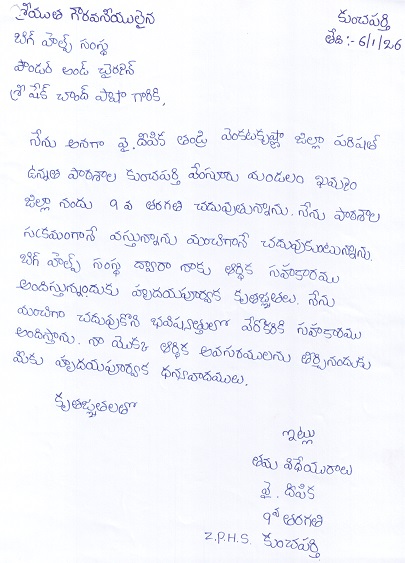 శ్రీయుత గౌరవనీయులైన
కుంచపర్తి
తేది:- 6/1/26
బిగ్ హెల్ప్ సంస్థ
పౌండర్ అండ్ చైర్మెన్
శ్రీ షేక్ చాంద్ పాషా గారికి,
నేను అనగా వై. దీపిక తండ్రి వెంకటకృష్ణా జిల్లా పరిషత్
ఉన్నత పాఠశాల కుంచపర్తి వేంసూరు మండలం ఖమ్మం
జిల్లా నందు 9 వ తరగతి చదువుతున్నాను. నేను పాఠశాల
సక్రమంగానే వస్తున్నాను మంచిగానే చదువుకుంటున్నాను.
బిగ్ హెల్ప్ సంస్థ ద్వారా నాకు ఆర్థిక సహాకారము
అందిస్తున్నందుకు హృదయపూర్వక కృతజ్ఞతలు. నేను
మంచిగా చదువుకొని భవిష్యత్తులో వేరొకరికి సహకారము
అందిస్తాను. నా యొక్క ఆర్థిక అవసరములను తీర్చినందుకు
మీకు హృదయపూర్వక ధన్యవాదములు.
కృతజ్ఞతలతో
ఇట్లు
తమ విధేయురాలు
వై. దీపిక
9వ తరగతి
Z.P.H.S. కుంచపర్తి